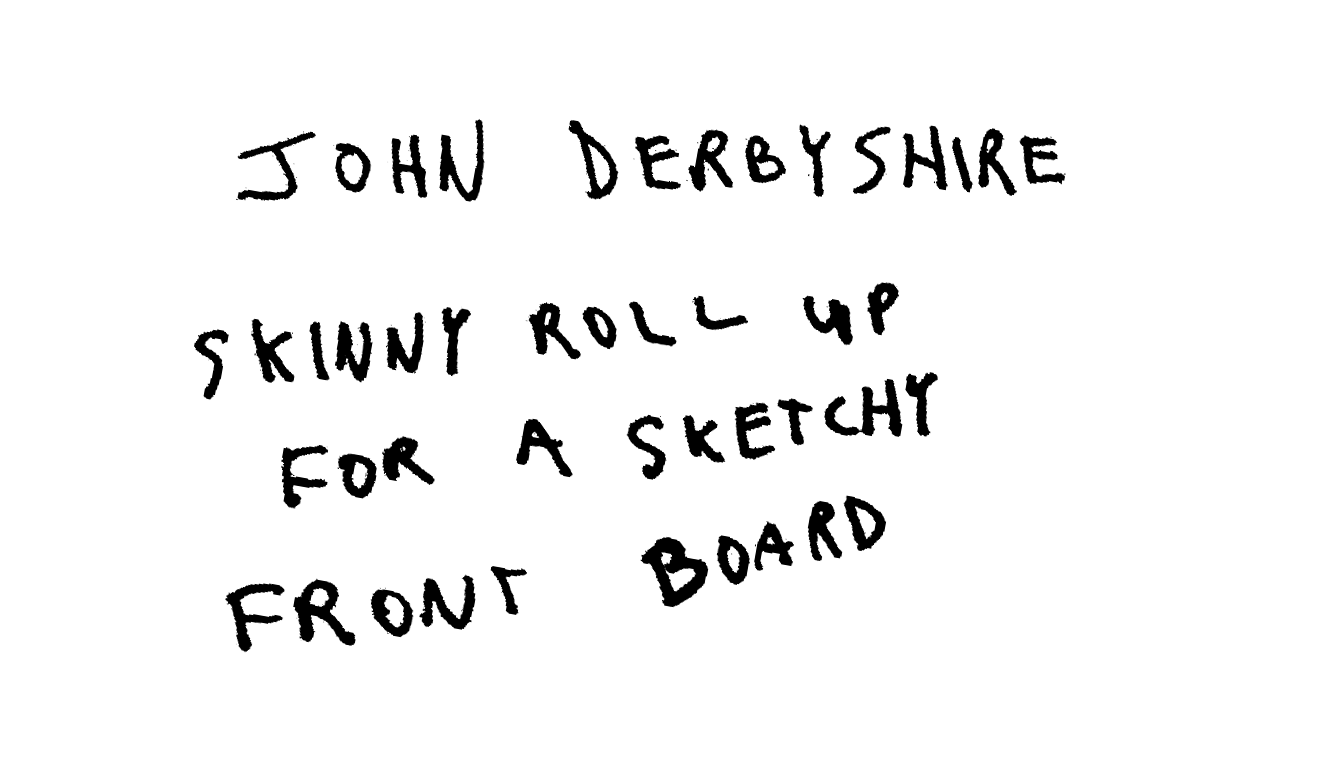 JOHN DERBYSHIRE
SKINNY ROLL UP
FOR A SKETCHY
FRONT BOARD